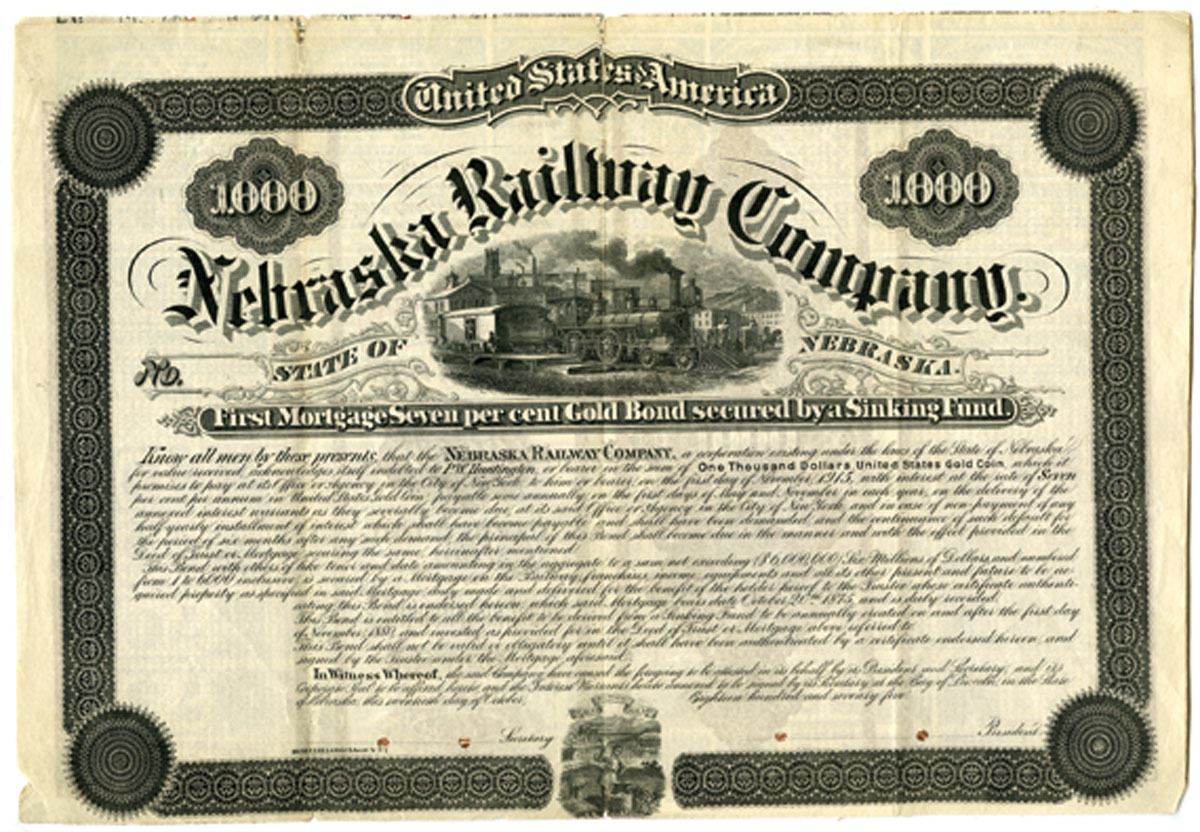 United States of America
1000
1000
Nebraska Railway Company.
No.
STATE OF
NEBRASKA.
First Mortgage Seven per cent Gold Bond secured by a Sinking Fund.
Know all men by these presents, that the NEBRASKA RAILWAY COMPANY, a corporation existing under the laws of the State of Nebraska
for value received, acknowledges itself indebted to P.W. Huntington, or bearer in the sum of One Thousand Dollars, United States Gold Coin, which it
promises to pay at its Office or Agency in the City of New York to him or bearer, on the first day of November 1915, with interest at the rate of Seven
per cent per annum in United States Gold Coin payable semi annually, on the first days of May and November in each year, on the delivery of the
annexed interest warrants as they severally become due, at its said Office or Agency in the City of New York, and in case of non-payment of any
half-yearly installment of interest which shall have become payable and shall have been demanded, and the continuance of such default for
the period of six months after any such demand, the principal of this Bond shall become due in the manner and with the effect provided in the
Deed of Trust or Mortgage securing the same, hereinafter mentioned.
This Bond with others of like tenor and date amounting in the aggregate to a sum not exceeding ($6,000,000) Six Millions of Dollars and numbered
from 1 to 6000 inclusive, is secured by a Mortgage on the Railway, franchises, income, equipments and all its other present and future to be ac-
quired property as specified in said Mortgage duly made and delivered for the benefit of the holder hereof to the Trustee whose certificate authenti-
cating this Bond is endorsed hereon, which said Mortgage bears date October 20th 1875, and is duly recorded.
This Bond is entitled to all the benefit to be derived from a Sinking Fund to be annually created on and after the first day
of November 1880, and invested as provided for in the Deed of Trust or Mortgage above referred to.
This Bond shall not be valid or obligatory until it shall have been authenticated by a certificate endorsed hereon and
signed by the Trustee under the Mortgage aforesaid.
In Witness Whereof, the said Company have caused the foregoing to be attested in its behalf by its President and Secretary, and its
Corporate Seal to be affixed hereto and the Interest Warrants hereto annexed to be signed by its Secretary at the City of Lincoln, in the State
of Nebraska, this day of October, Eighteen hundred and seventy five.
Secretary
President